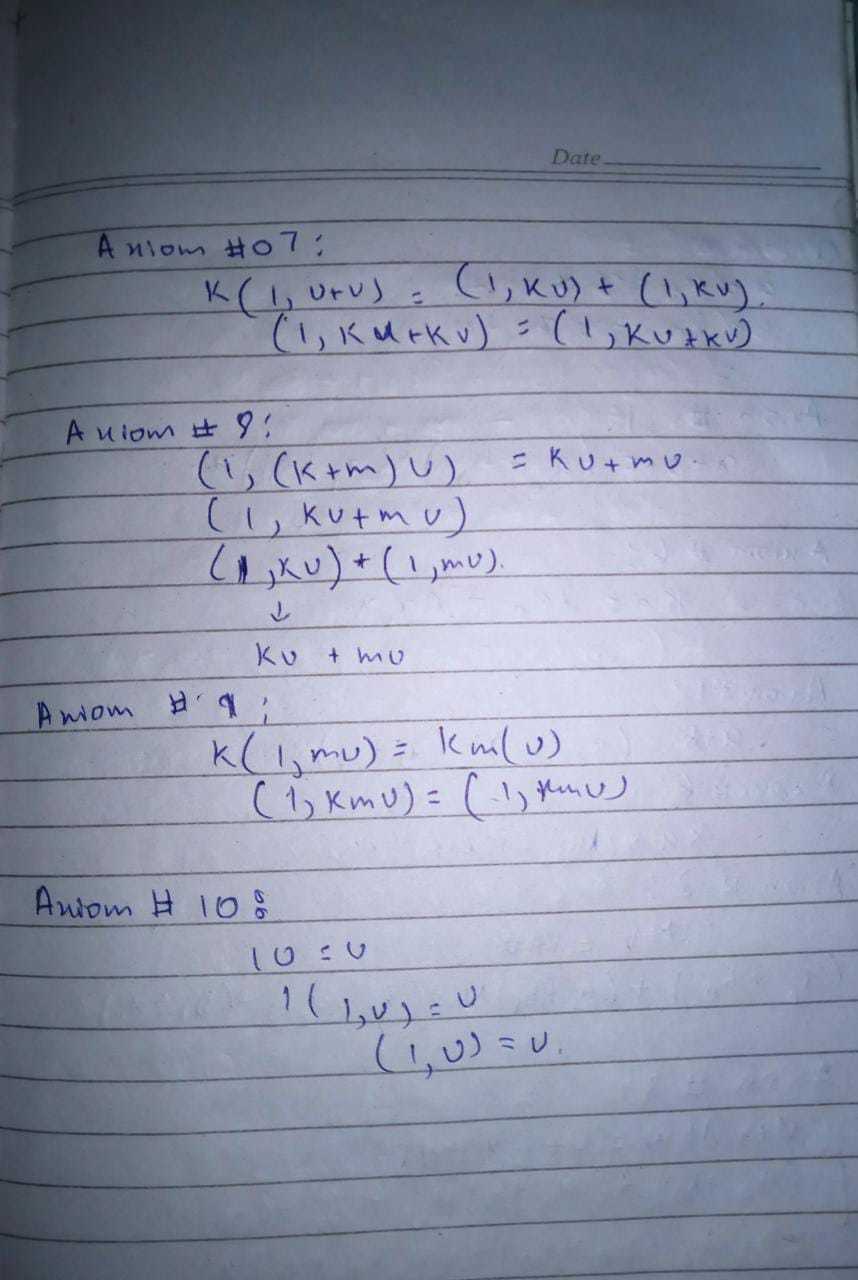 Date
Axiom #07:
K(1, u+v) = (1, Ku) + (1, Kv).
(1, Ku+Kv) = (1, Ku+Kv)
Axiom # 8:
(1, (K+m)u) = Ku+mu.
(1, Ku+mu)
(1, Ku) + (1, mu).
↓
Ku + mu
Axiom # 9:
K(1, mu) = Km(u)
(1, Kmu) = (1, Kmu)
Axiom # 10:
1u = u
1(1,u) = u
(1, u) = u.